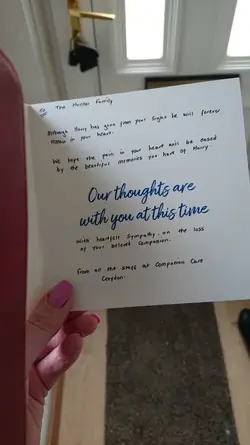 To The Hunter Family
Although Harry has gone from your sight he will forever
remain in your heart.
We hope the pain in your heart will be eased
by the beautiful memories you have of Harry.
Our thoughts are
with you at this time
With heartfelt sympathy on the loss
of your beloved companion.
From all the staff at Companion Care
Croydon.